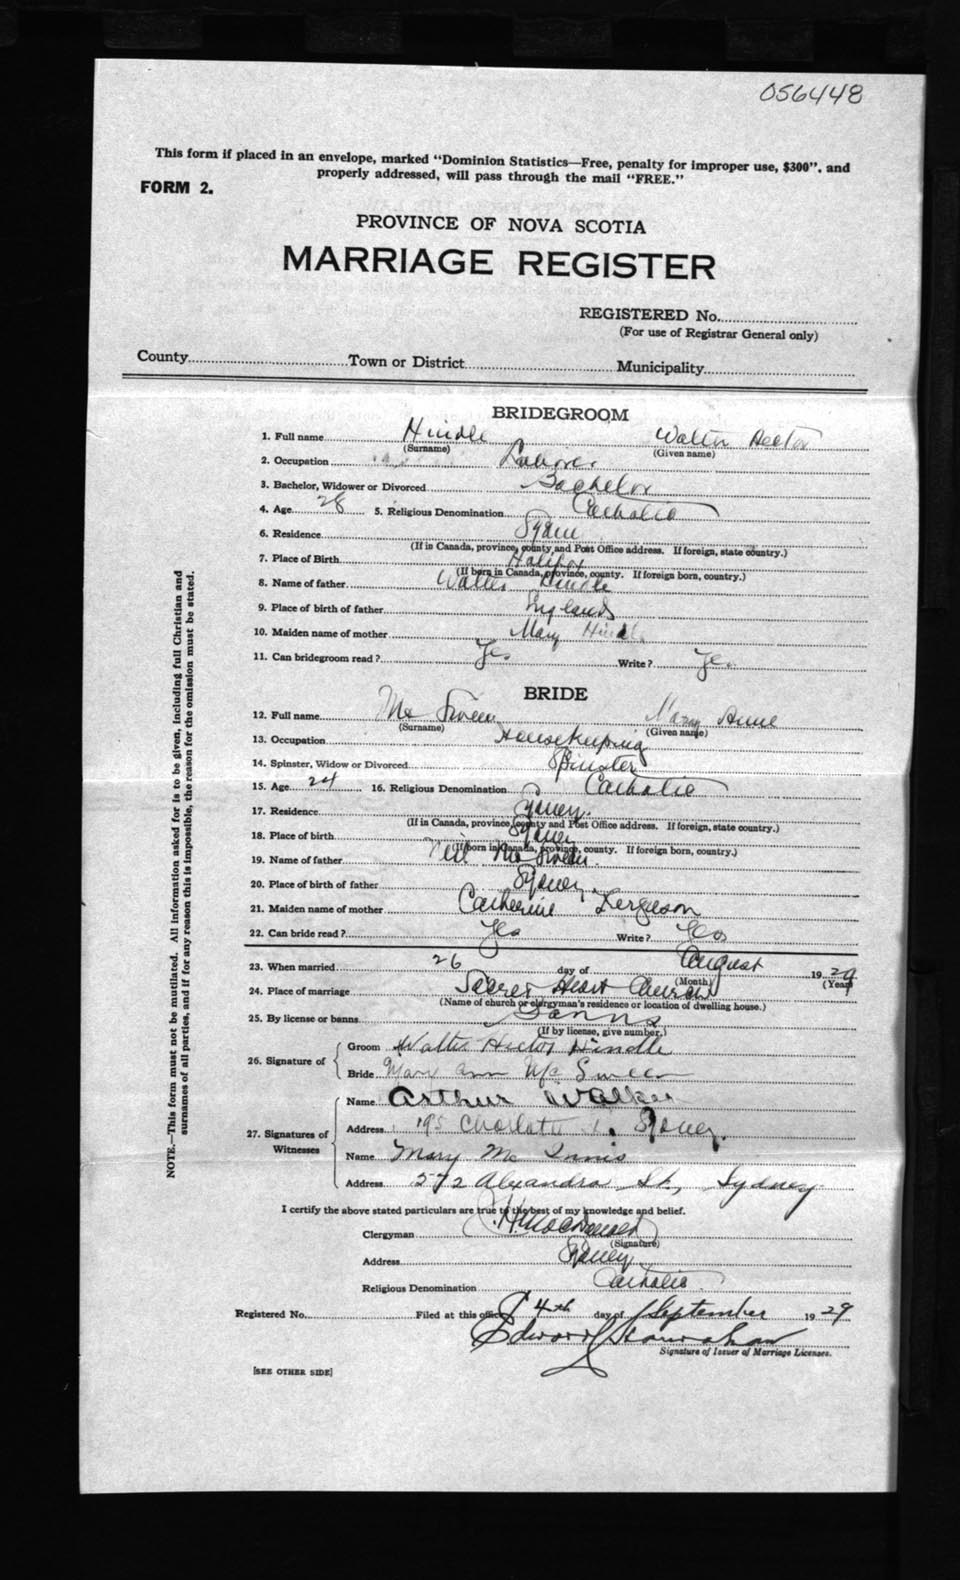 056448
This form if placed in an envelope, marked "Dominion Statistics—Free, penalty for improper use, $300", and
properly addressed, will pass through the mail "FREE."
FORM 2.
PROVINCE OF NOVA SCOTIA
MARRIAGE REGISTER
REGISTERED No.
(For use of Registrar General only)
County Town or District Municipality
BRIDEGROOM
1. Full name Hindle Walter Hector
(Surname) (Given name)
2. Occupation Laborer
3. Bachelor, Widower or Divorced Bachelor
4. Age 28 5. Religious Denomination Catholic
6. Residence
(If in Canada, province, county and Post Office address. If foreign, state country.)
7. Place of Birth Halifax
(If born in Canada, province, county. If foreign born, country.)
8. Name of father Walter Hindle
9. Place of birth of father England
10. Maiden name of mother Mary
11. Can bridegroom read? Yes Write? Yes
BRIDE
12. Full name Mc Sween Mary Anne
(Surname) (Given name)
13. Occupation Housekeeping
14. Spinster, Widow or Divorced Spinster
15. Age 24 16. Religious Denomination Catholic
17. Residence Sydney
(If in Canada, province, county and Post Office address. If foreign, state country.)
18. Place of birth Sydney
(If born in Canada, province, county. If foreign born, country.)
19. Name of father Neil Mc Sween
20. Place of birth of father Sydney
21. Maiden name of mother Catherine Ferguson
22. Can bride read? Yes Write? Yes
23. When married 26 day of August 1929
(Month) (Year)
24. Place of marriage Sacred Heart Church
(Name of church or clergyman's residence or location of dwelling house.)
25. By license or banns Banns
(If by license, give number.)
26. Signature of
Groom Walter Hector Hindle
Bride Mary Ann Mc Sween
27. Signatures of Witnesses
Name Arthur Walker
Address 195 Sydney.
Name Mary Mc Innis
Address 572 Alexandra St, Sydney
I certify the above stated particulars are true to the best of my knowledge and belief.
Clergyman MacDonald
(Signature)
Address Sydney
Religious Denomination Catholic
Registered No. Filed at this office 4th day of September 1929
Edward
Signature of Issuer of Marriage Licenses.
[SEE OTHER SIDE]
NOTE.—This form must not be mutilated. All information asked for is to be given, including full Christian and
surnames of all parties, and if for any reason this is impossible, the reason for the omission must be stated.